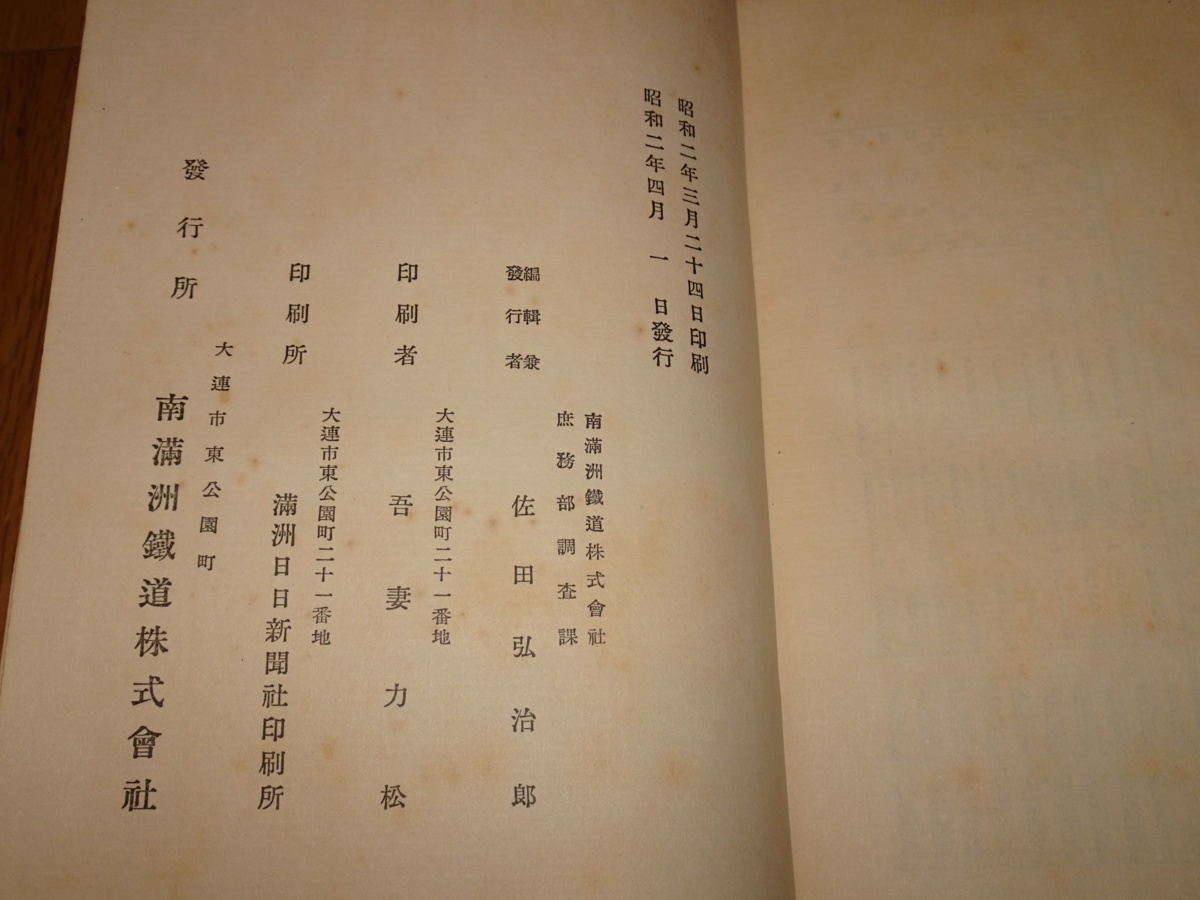 昭和二年三月二十四日印刷
昭和二年四月一日發行
南滿洲鐵道株式會社
庶務部調査課
編輯兼
發行者
佐田弘治郎
大連市東公園町二十一番地
印刷者
吾妻力松
大連市東公園町二十一番地
印刷所
滿洲日日新聞社印刷所
大連市東公園町
發行所
南滿洲鐵道株式會社